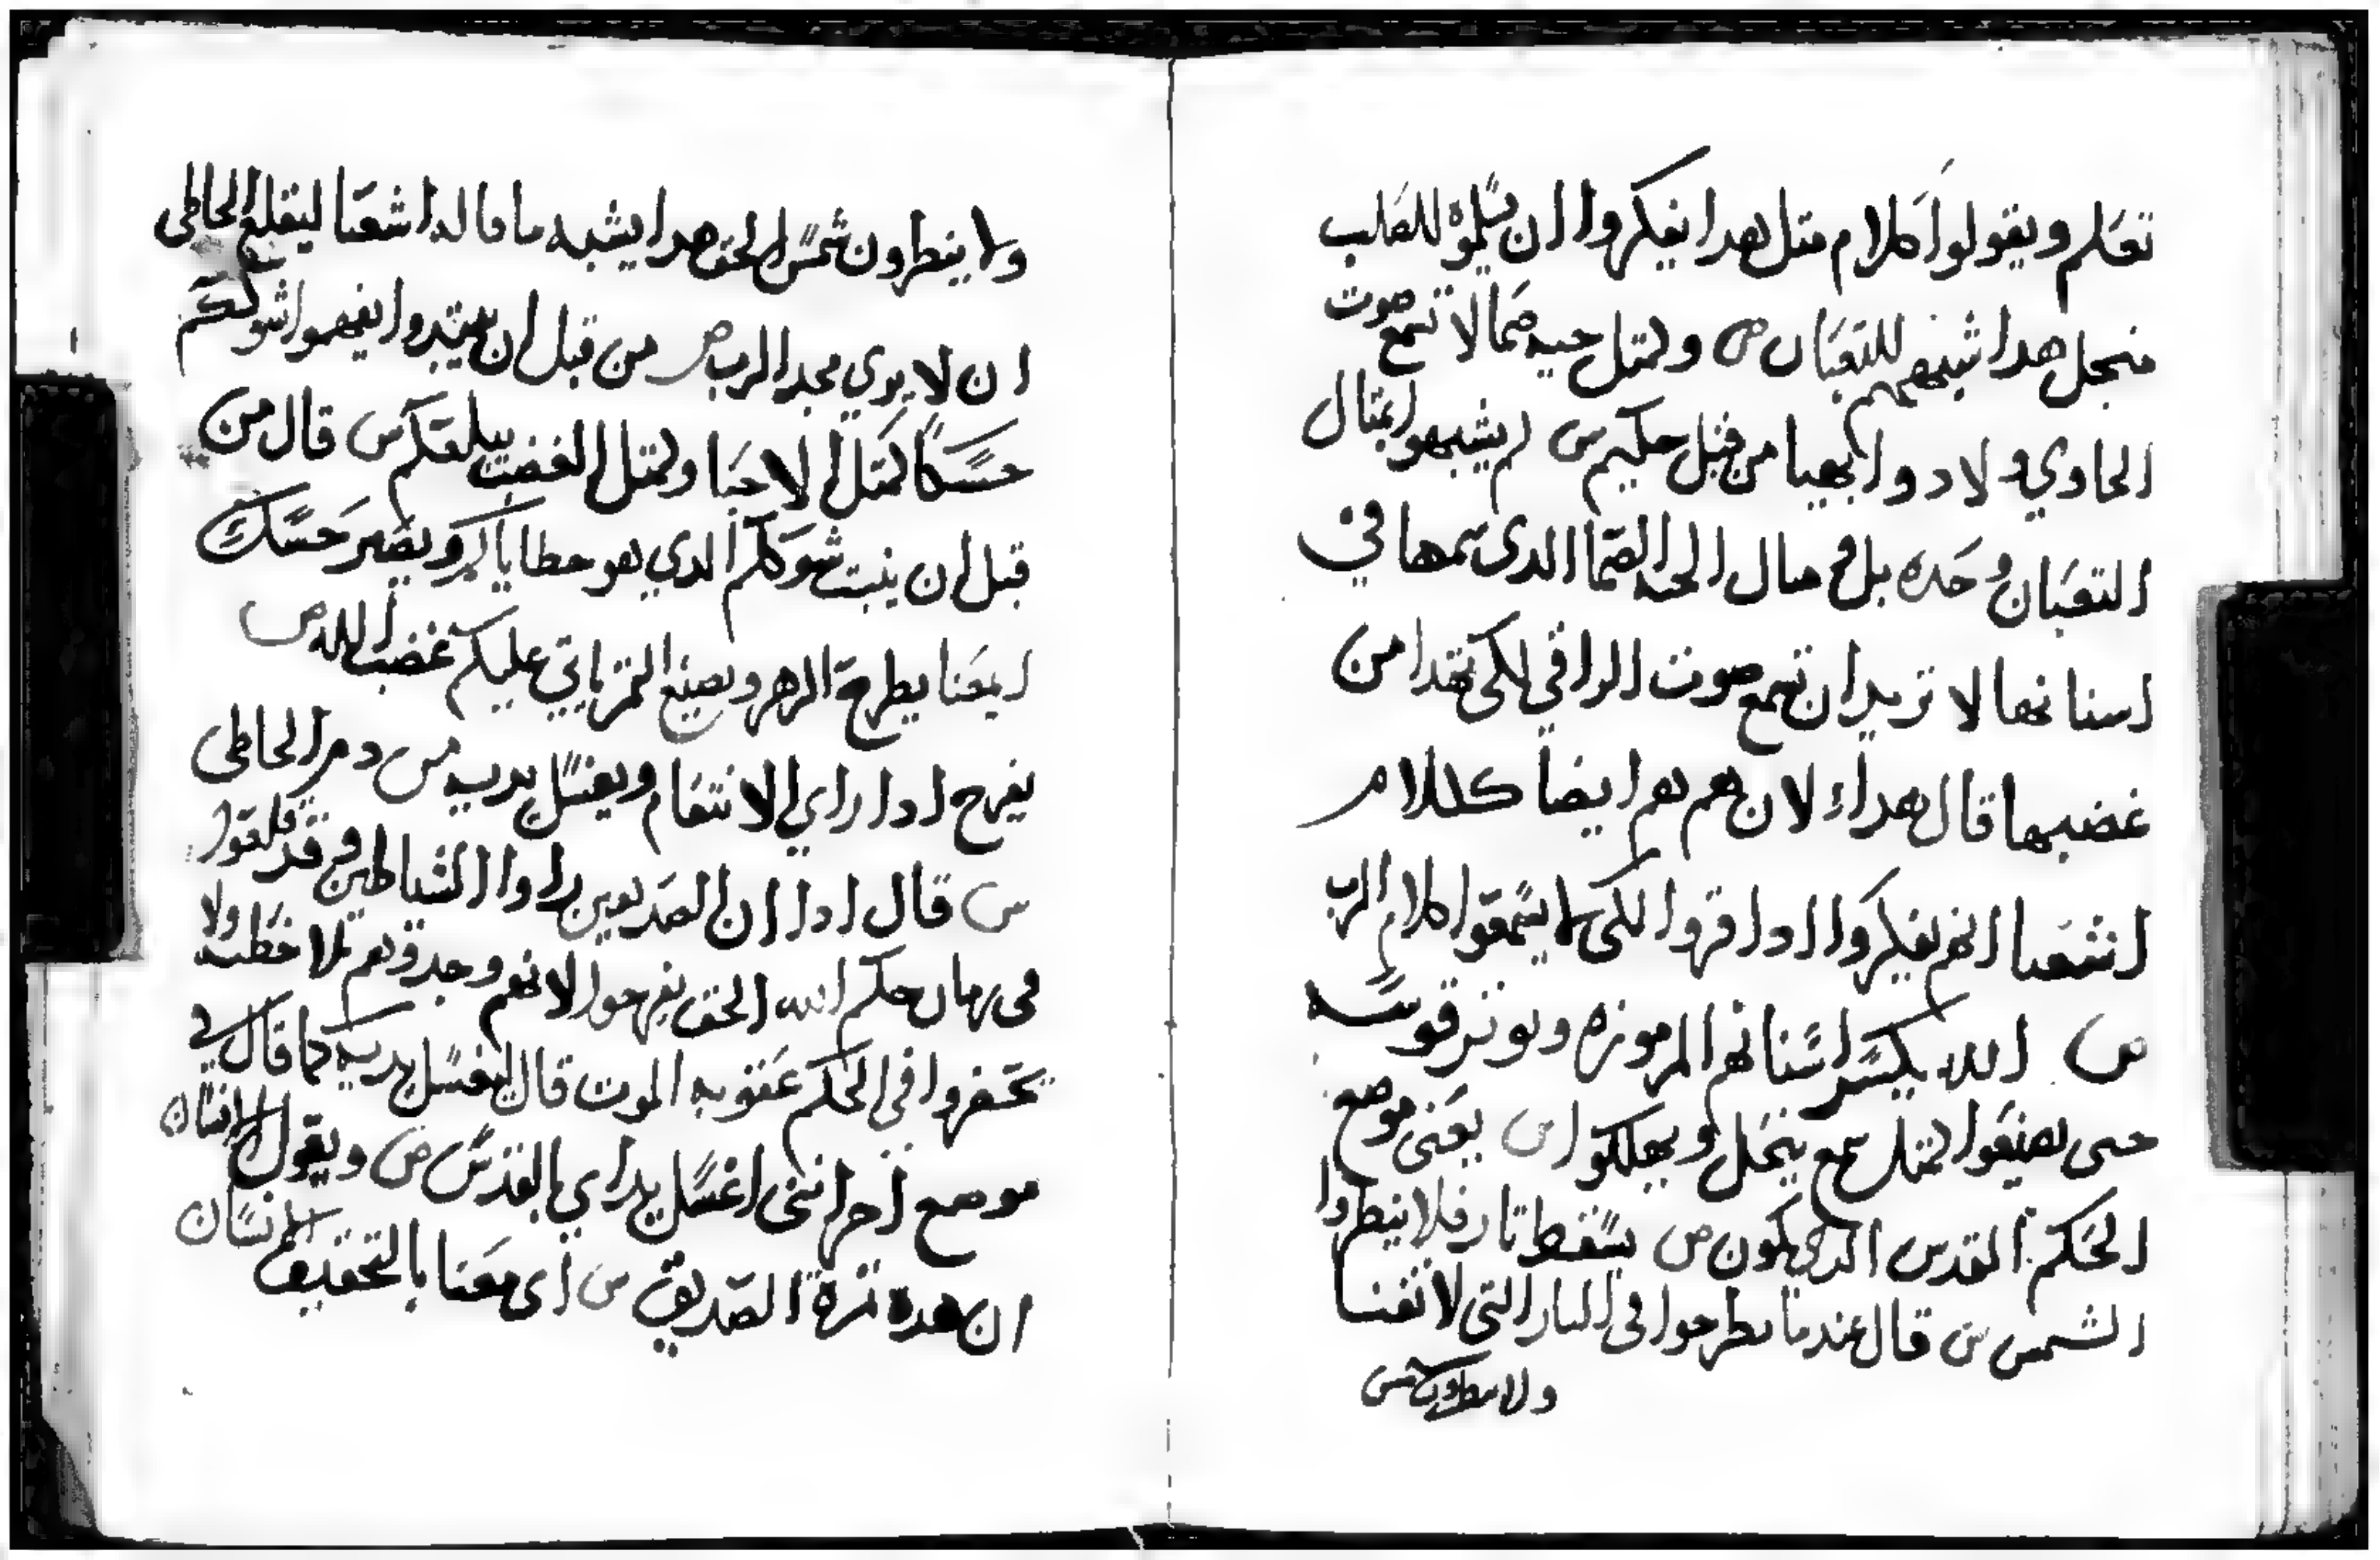 تعلم ويقولوا كلام متل هدا يفكروا ان يسلموه للصلب
منجل هدا شبههم للتعبان ص ولمتل حيه صما لا تسمع صوت
الحاوي ولا دوا بهيا من قبل حكيم س لم يشبهوا بمتال
التعبان وحده بل و متال الحيه الصما الدى سمها في
اسنانها لا تريد ان تسمع صوت الراقي لكي تهتدا من
غضبها قال هدا لان هم هم ايضا كللام
اشعيا انهم يفكروا ادا قروا لكي لا يسمعوا كلام الرب
ص الله يكسر اسنانهم المرموزه ويوتر قوسه
حتى يصنعوا لمتل سمع ينحل ويهلكوا س يعنى موضع
الحكم القدس الدي يكون ص يسقط نار فلا ينطروا
الشمس س قال عندما يطرحوا فى النار التى لا تفنا
ولا ينطرون شمس
ولا ينطرون شمس الحق هدا يشبه ما قاله اشعيا ليقلع الخاطى
ان لا يري مجد الرب ص من قبل ان يبتدوا يفهموا شوككم
حسكا لمتل الاحيا ولمتل الغضب يبلعكم س قال من
قبل ان ينبت شوككم الدي هو خطاياكم ويصير حسك
ايمعنا يطرح الزهر ويصنع التمر ياتي عليكم غضب الله ص
يفرح ادا راي الانتقام ويغسل يديه من دم الخاطى
س قال ادا ان الصديقين راوا الشياطين و قد
فى زمان حكم الله الحق يفرحوا لانهم وجدوهم بلا خطيه ولا
فى الحكم عقوبه الموت قال ليغسل يديه كما قال في
موضع اخر اننى اغسل يداي بالقدس ص ويقول الانسان
ان هده تمرة الصديق س اى معنا بالتحقيق الانسان